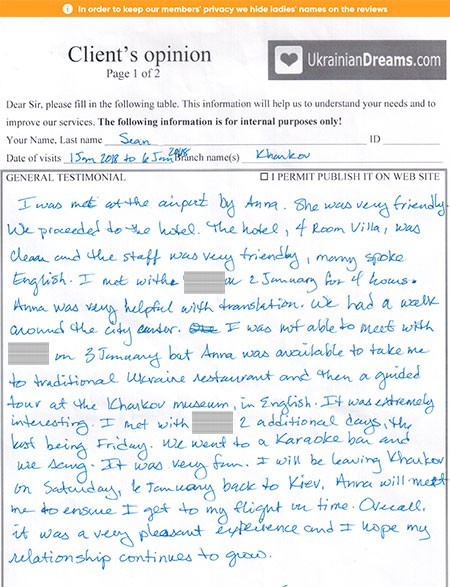 In order to keep our members' privacy we hide ladies' names on the reviews
Client's opinion
Page 1 of 2
UkrainianDreams.com
Dear Sir, please fill in the following table. This information will help us to understand your needs and to
improve our services. The following information is for internal purposes only!
Your Name, Last name Sean ID
Date of visits 1 Jan 2018 to 6 Jan 2018 Branch name(s) Kharkov
GENERAL TESTIMONIAL ☐ I PERMIT PUBLISH IT ON WEB SITE
I was met at the airport by Anna. She was very friendly.
We proceeded to the hotel. The hotel, 4 Room Villa, was
clean and the staff was very friendly, many spoke
English. I met with on 2 January for 4 hours.
Anna was very helpful with translation. We had a walk
around the city center. I was not able to meet with
on 3 January but Anna was available to take me
to traditional Ukraine restaurant and then a guided
tour at the Kharkov museum, in English. It was extremely
interesting. I met with 2 additional days, the
last being Friday. We went to a Karaoke bar and
we sang. It was very fun. I will be leaving Kharkov
on Saturday, 6 January back to Kiev. Anna will meet
me to ensure I get to my flight in time. Overall,
it was a very pleasant experience and I hope my
relationship continues to grow.